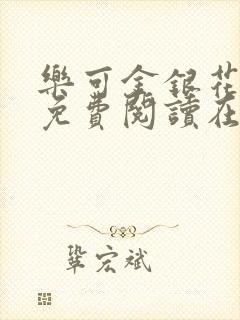 樂可金銀花
免費閱讀在
鞏宏斌